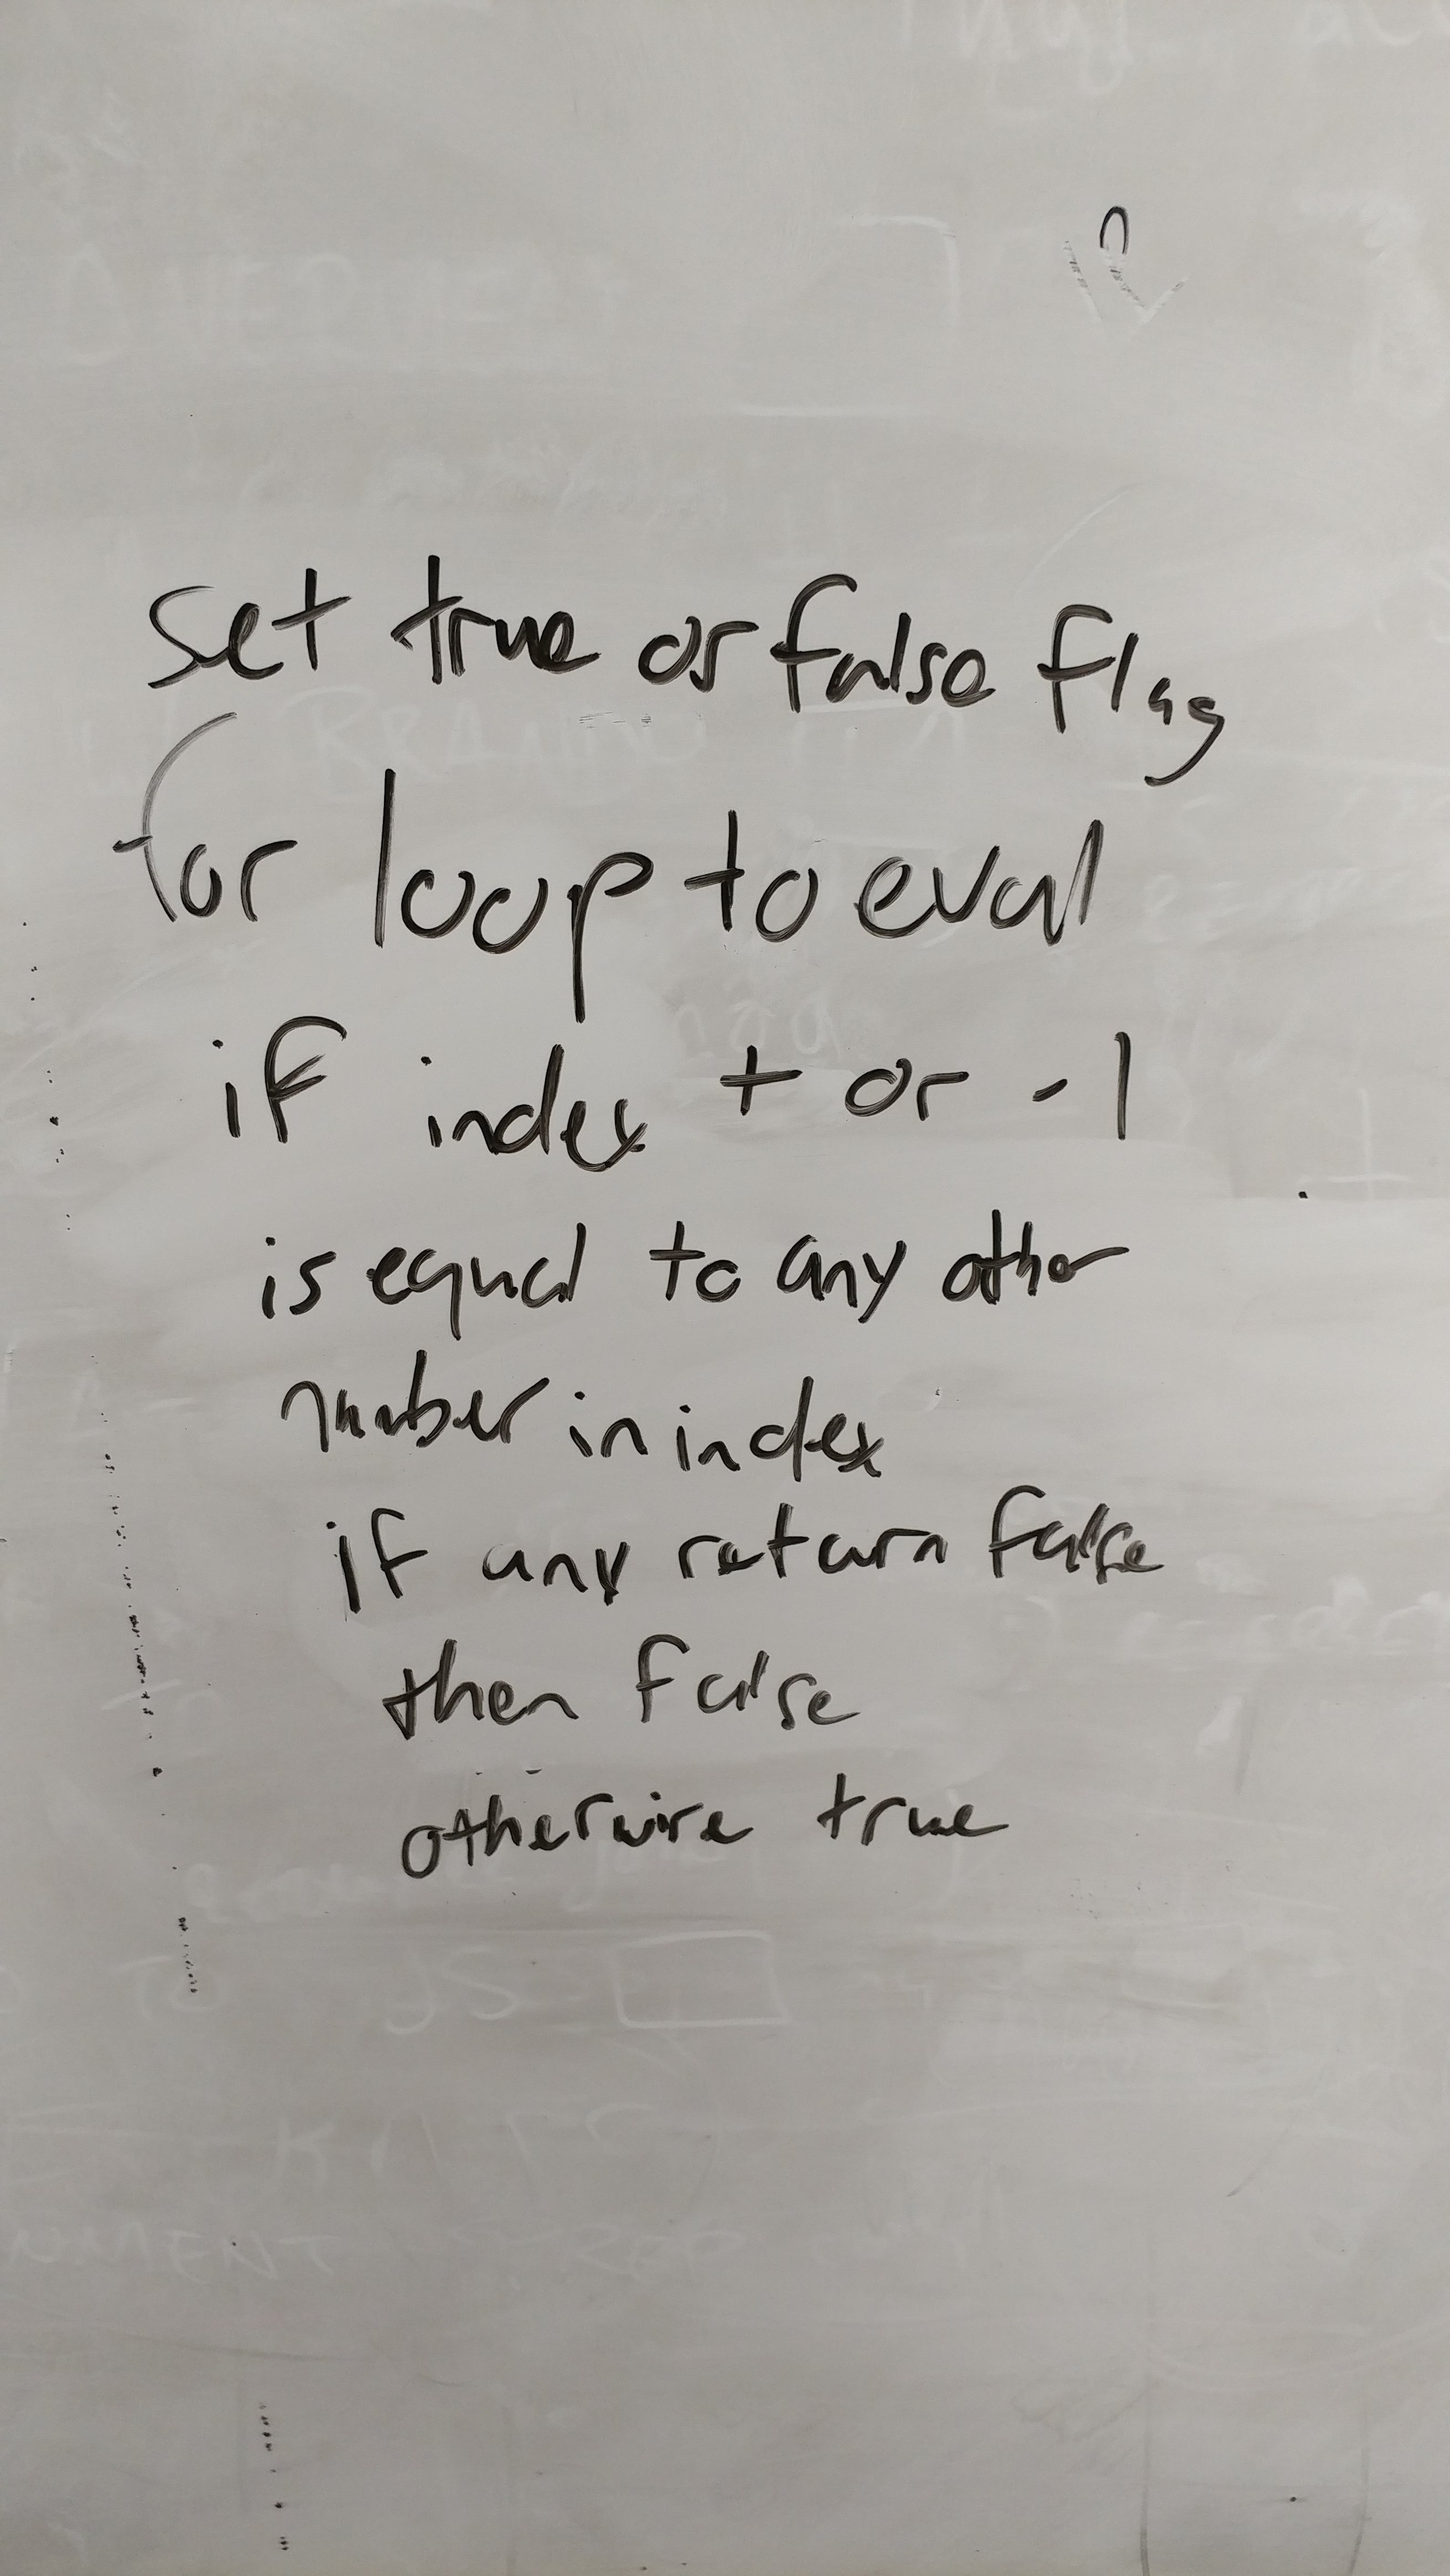 set true or false flag
for loop to eval
if index + or - 1
is equal to any other
number in index
if any return false
then false
otherwise true